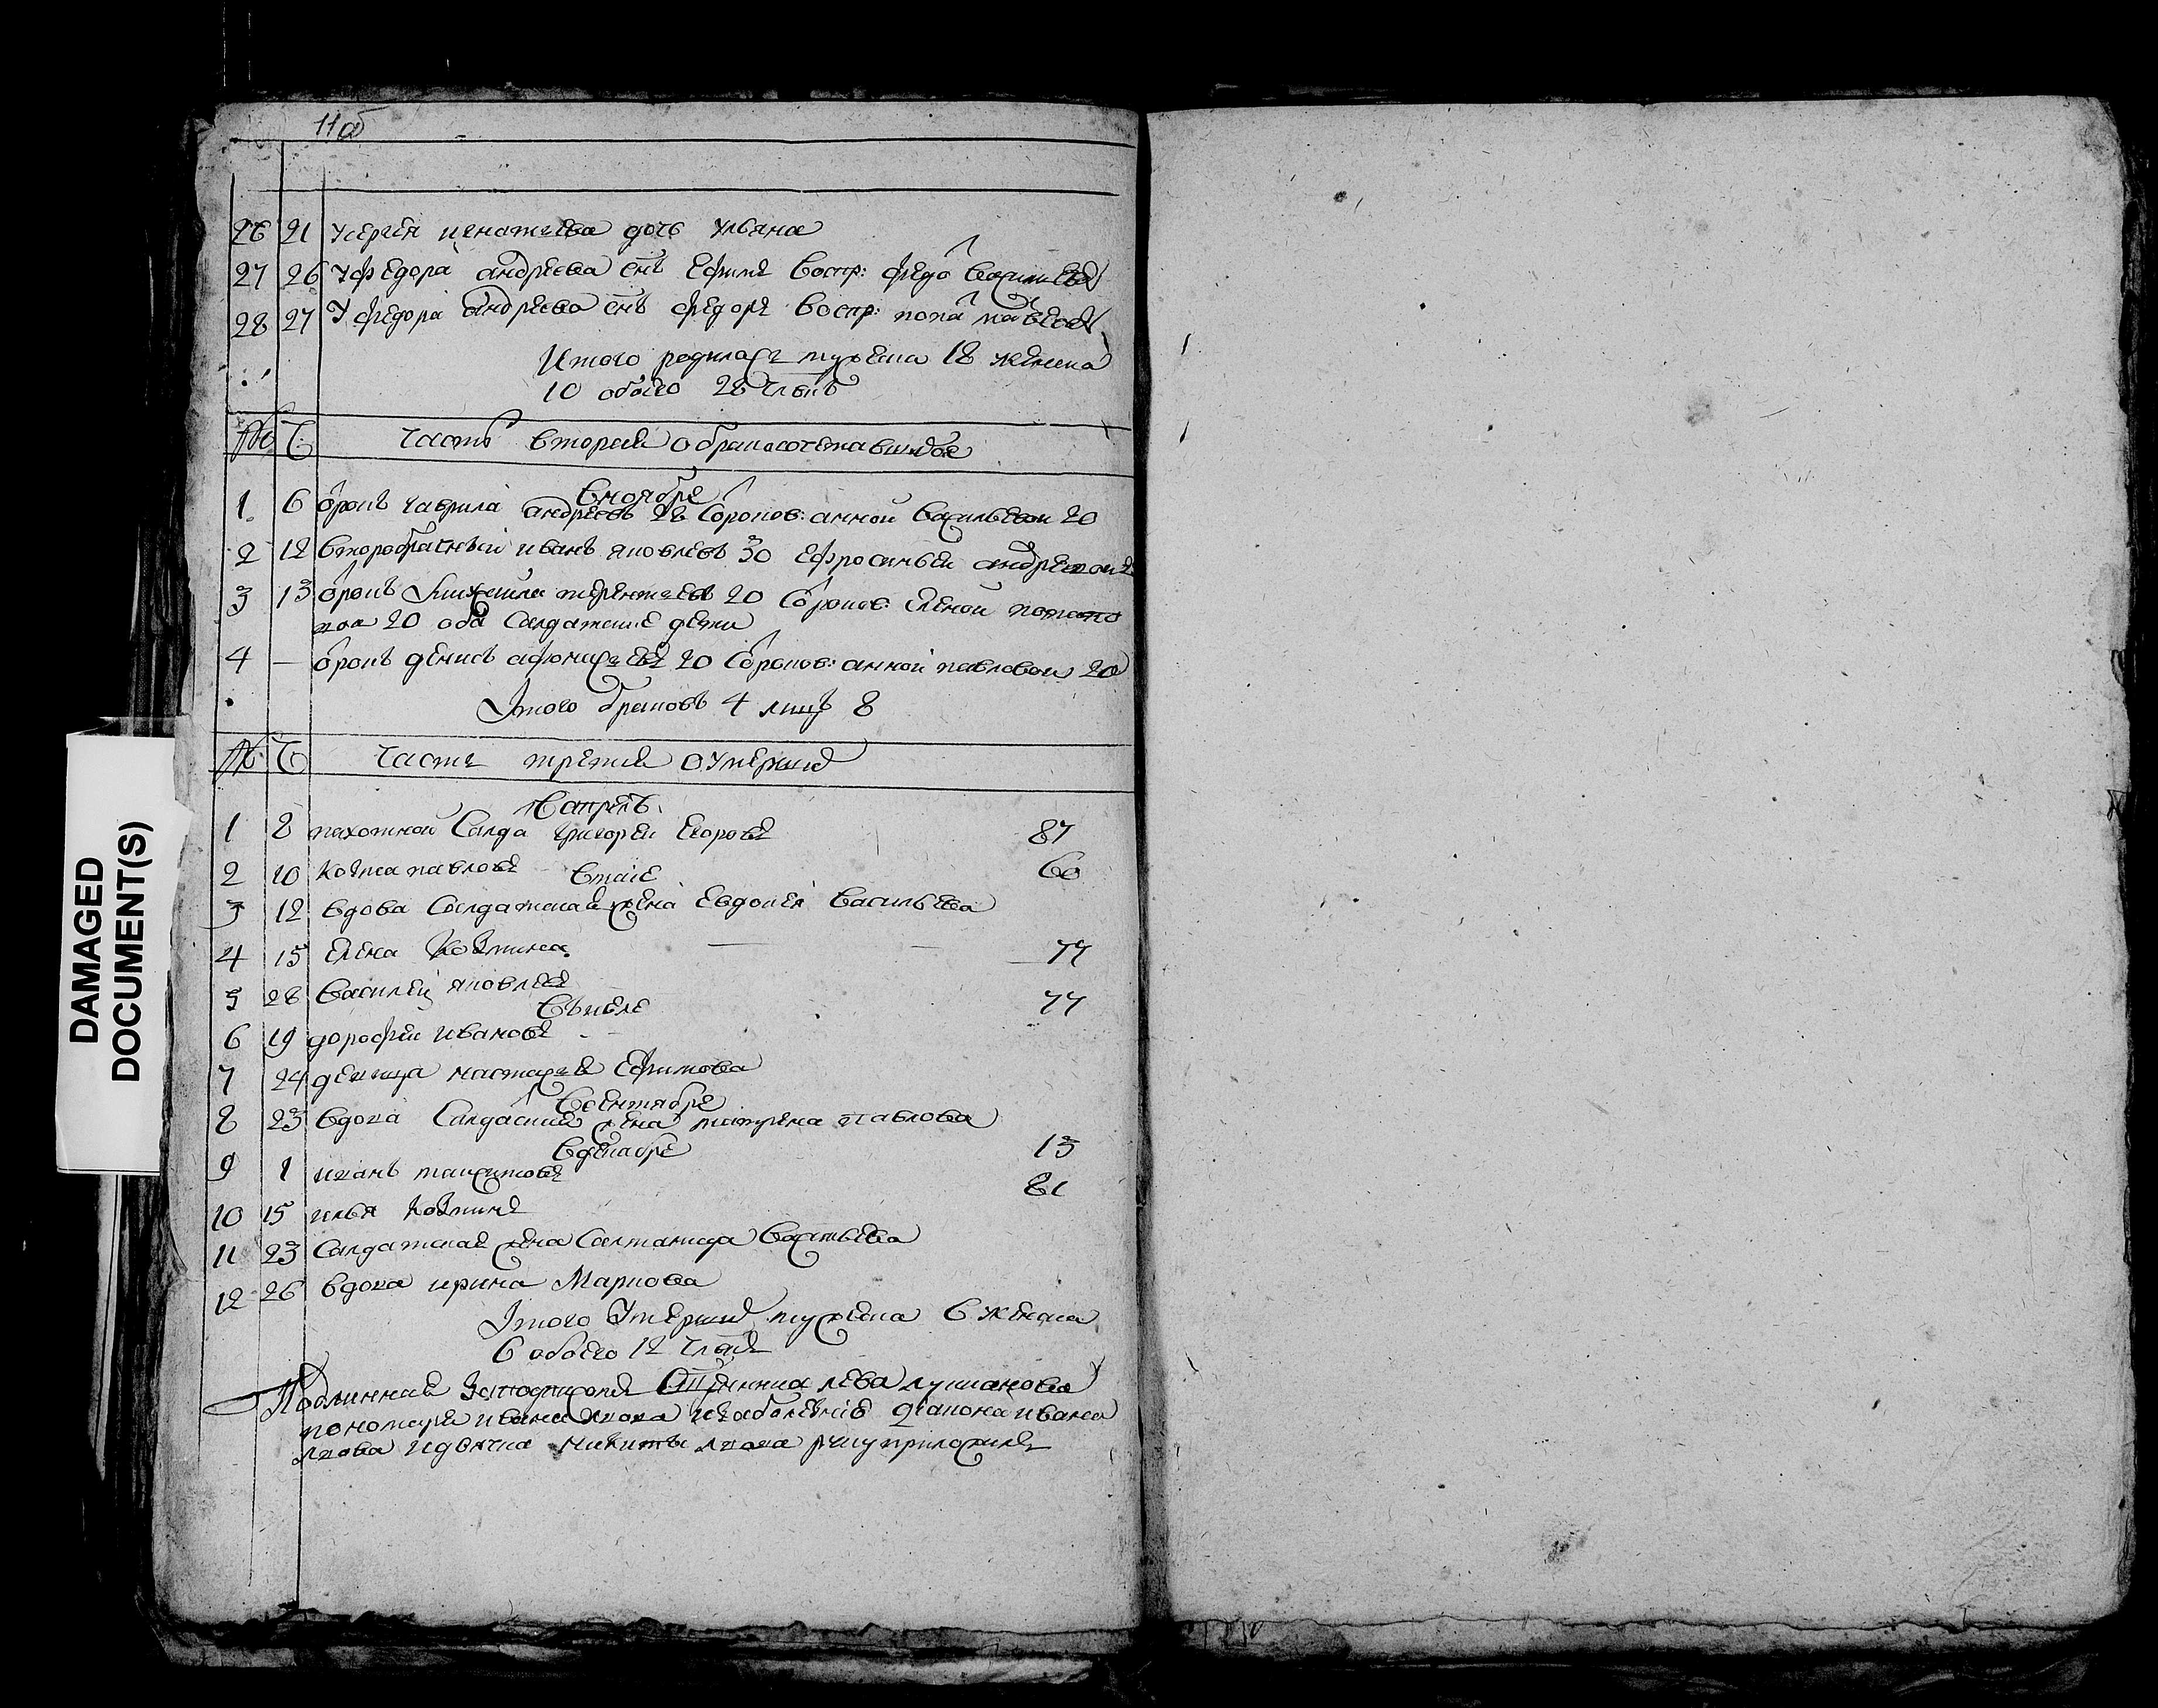 11об
26 21 у сергея игнатьева дочь ульяна
27 26 у федора андреева снъ ефимъ воспр: федо василье
28 27 у федора андреева снъ федоръ воспр: попа
Итого родилась мужеска 18 женска
10 обоего 28 члвкъ
№ Ч часть вторая о бракосочетавшихся
в ноябре
1 6 отрокъ гаврила андреевъ 28 с отроков: анной васильевой 20
2 12 второбрачный иванъ яковлевъ 30 ефросиньей андреевой
3 13 отрокъ михайла терентьевъ 20 с отроков: еленой потапо
вой 20 оба салдатские дети
4 — отрокъ денисъ афонасьевъ 20 с отроков: анной павловой 20
Итого браковъ 4 лицъ 8
№ Ч часть третия о умершихъ
в апреле
1 8 пахотной салда григорей егоровъ 87
2 20 козма павловъ 60
в маие
3 12 вдова салдатская жена евдокея васильева
4 15 елена козмина 77
5 28 василей яковлевъ 77
в июле
6 19 дорофей ивановъ
7 24 девица настасья ефимова
в сентябре
8 23 вдова салдаская жена матрена павлова
в декабре 13
9 1 иванъ максимовъ 81
10 15 илья козминъ
11 23 салдатская жена салтанида васильева
12 26 вдова ирина Маркова
Итого умершихъ мужеска 6 женска
6 обоего 12 члвкъ
Подлинная за подписомъ священника лева лукианова
пономаря ивана львова диакона ивана
львова и дьячка никиты львова руку приложилъ
DAMAGED
DOCUMENT(S)